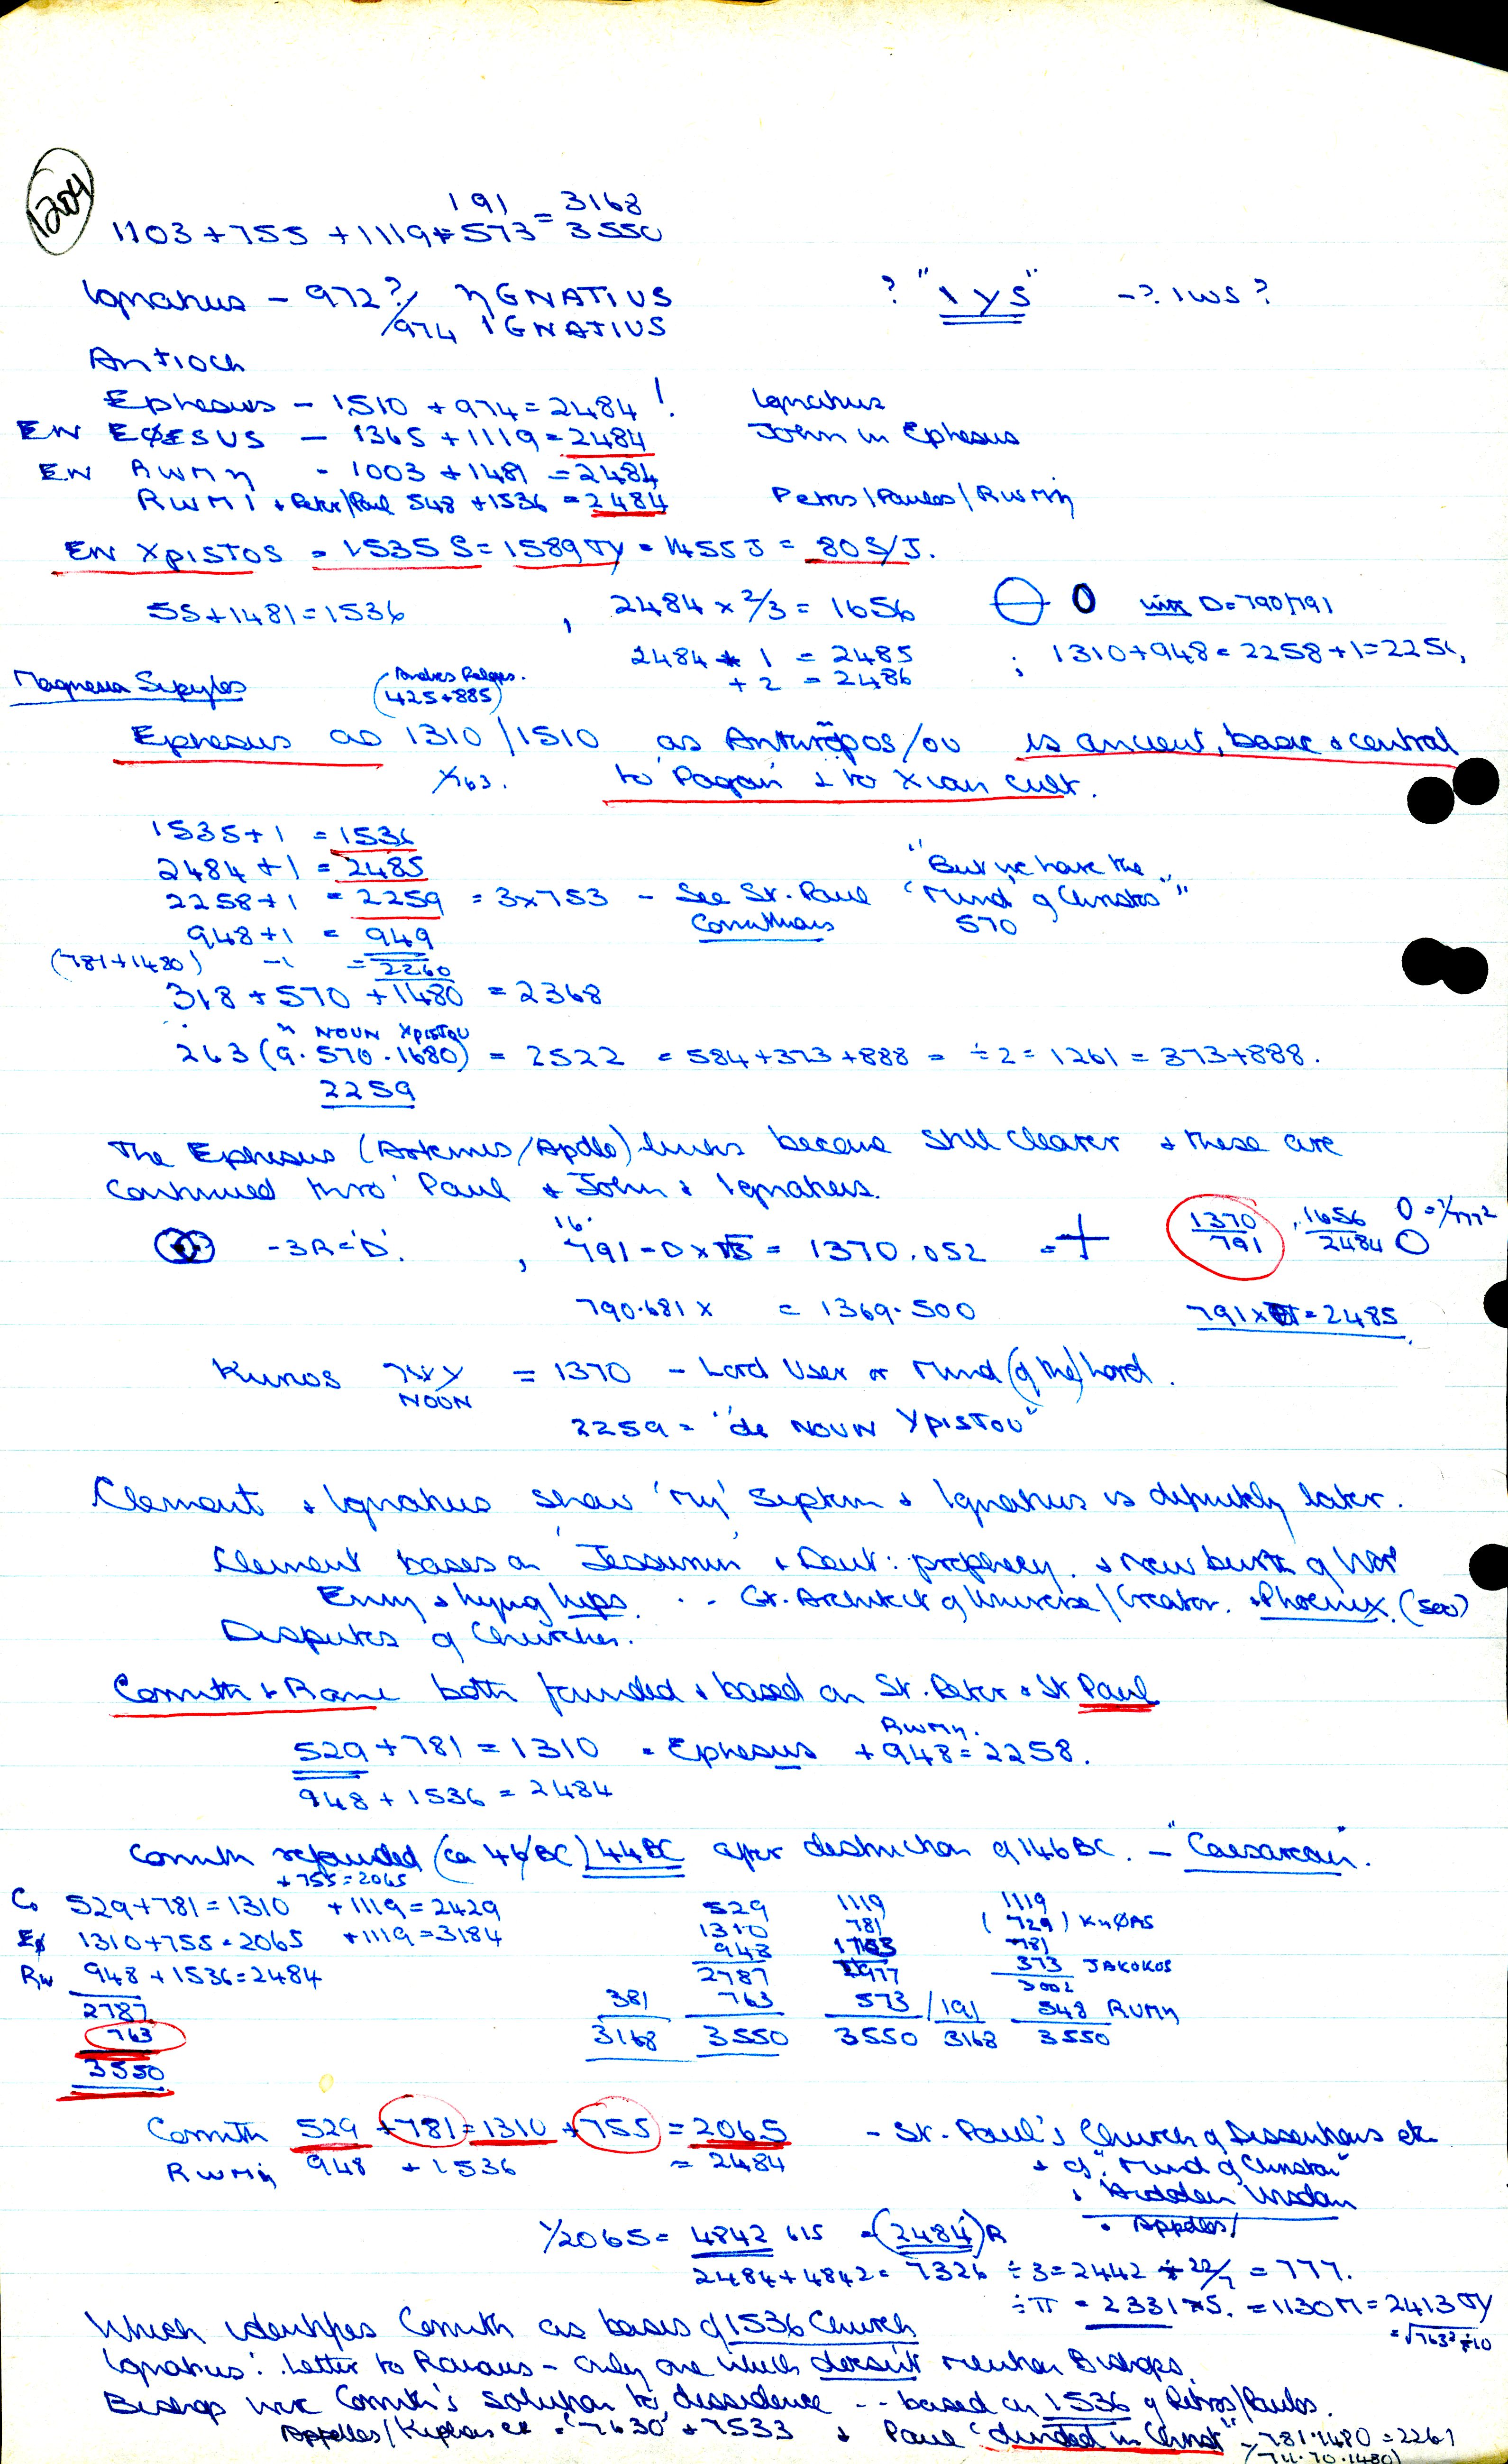 1204
191 = 3168
1103 + 755 + 1119 + 573 = 3550
Ignatius - 972? / ηGNATIUS ? "IγS" -? IWS ?
/974 IGNATIUS
Antioch
Ephesus - 1510 + 974 = 2484 ! Ignatius
EN EØESUS - 1365 + 1119 = 2484 John in Ephesus
EN RWMη - 1003 + 1481 = 2484
RWMI + Peter/Paul 548 + 1536 = 2484 Petros/Paulos/RWMη
EN XPISTOS = 1535 S = 1589 = 1455 J = 80 S/J.
55 + 1481 = 1536 , 2484 x 2/3 = 1656 O D = 790/791
2484 + 1 = 2485 ; 1310 + 948 = 2258 + 1 = 225
+ 2 = 2486
Magnesia Sipylos (425 + 885)
Ephesus as 1310/1510 as Anthropos/ou is ancient, basic & central
763. to 'Pagan' & to Xian cult.
1535 + 1 = 1536
2484 + 1 = 2485 "But we have the
2258 + 1 = 2259 = 3x753 - See St. Paul 'Mind of Christos'"
948 + 1 = 949 Corinthians 570
(781 + 1480) -1 = 2260
318 + 570 + 1480 = 2368
NOUN XPISTOU
263 (9.570.1680) = 2522 = 584 + 373 + 888 = ÷2 = 1261 = 373 + 888.
2259
The Ephesus (Artemis/Apollo) links become still clearer & these are
continued thro' Paul & John & Ignatius.
- 3R = 'D'. , 791 = D x √3 = 1370.052 = + 1370/791 , 1656/2484 O
790.681 x = 1369.500 791 x π = 2485
Kurios NOUN = 1370 - Lord User or Mind (of the) Lord.
2259 = "de NOUN XPISTOU"
Clement & Ignatius show 'my' System & Ignatius is definitely later.
Clement bases on 'Jessumin' & Deut: prophecy. & new birth of
Envy & lying lips. .. Gt. Architect of Universe/Creator. & Phoenix. (500)
Disputes of Churches.
Corinth & Rome both founded & based on St. Peter & St Paul
RWMη.
529 + 781 = 1310 = Ephesus + 948 = 2258.
948 + 1536 = 2484
Corinth refounded (ca 46 BC) 44 BC after destruction of 146 BC. - "Caesarean".
+ 755 = 2065
Co 529 + 781 = 1310 + 1119 = 2429 529 1119 1119
Eø 1310 + 755 = 2065 + 1119 = 3184 1310 781 (729) KηØAS
Rw 948 + 1536 = 2484 948 781
2787 2787 373 JAKOKOS
763 381 763 573 / 191 548 RUMη
3550 3168 3550 3550 3168 3550
Corinth 529 + 781 = 1310 + 755 = 2065 - St. Paul's Church of Dissentions etc
RWMη 948 + 1536 = 2484 & of "Mind of Christou"
& Hidden Wisdom
1/2065 = 4842 615 = (2484) R & Appolos/
2484 + 4842 = 7326 ÷ 3 = 2442 ÷ 22/7 = 777.
÷ π = 2331 = 1130 M = 2413
= √763² ÷ 10
Which identifies Corinth as basis of 1536 Church
Ignatius': Letter to Romans - only one which doesn't mention Bishops.
Bishop was Corinth's solution to dissidence .. based on 1536 of Petros/Paulos.
Appolos/Kephas etc = '7630' + 7533 & Paul "divided in Christ" - 781.1480 = 2261
(711.70.1480)